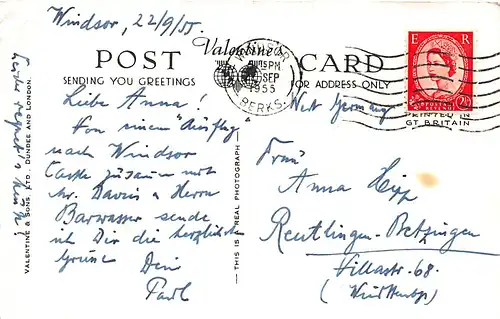 Windsor, 22/9/55.
POST CARD
Valentine's
SENDING YOU GREETINGS
FOR ADDRESS ONLY
WINDSOR
PM
SEP
1955
BERKS.
E R
POSTAGE
REVENUE
PRINTED IN
GT BRITAIN
Liebe Anna!
Von einem "Ausflug"
nach Windsor
Castle zusammen mit
Mr. Davis & Herrn
Barwasser sende
ich Dir die herzlichsten
Grüsse Dein
Paul
West Germany
Frau
Anna Hipp
Reutlingen-Betzingen
Villastr. 68.
VALENTINE & SONS, LTD., DUNDEE AND LONDON.
— THIS IS A REAL PHOTOGRAPH —